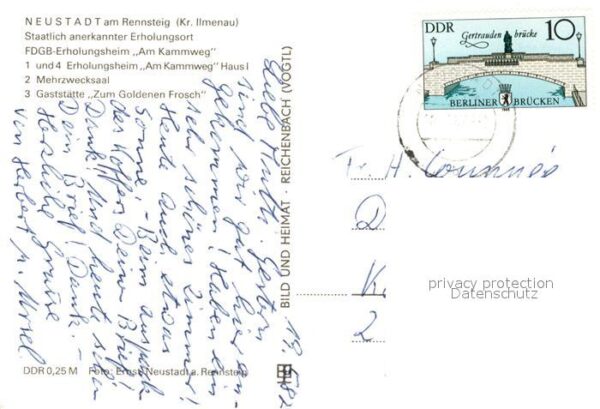 NEUSTADT am Rennsteig (Kr. Ilmenau)
Staatlich anerkannter Erholungsort
FDGB-Erholungsheim „Am Kammweg"
1 und 4 Erholungsheim „Am Kammweg" Haus I
2 Mehrzwecksaal
3 Gaststätte „Zum Goldenen Frosch"
Gestern
sind wir gut hier an-
gekommen! Haben ein
sehr schönes Zimmer!
Heute auch etwas
Sonne, - Beim auspacken
der Koffer Deinen Brief!
Dank! Und heute schon
Dein Brief! Dank. -
Herzliche Grüsse
von Herbert u. Ursel.
DDR 0,25 M Foto: Ernst, Neustadt a. Rennsteig
BILD UND HEIMAT · REICHENBACH (VOGTL)
DDR
10
Gertraudenbrücke
BERLINER BRÜCKEN
Fr. H.
D
K
2
privacy protection
Datenschutz